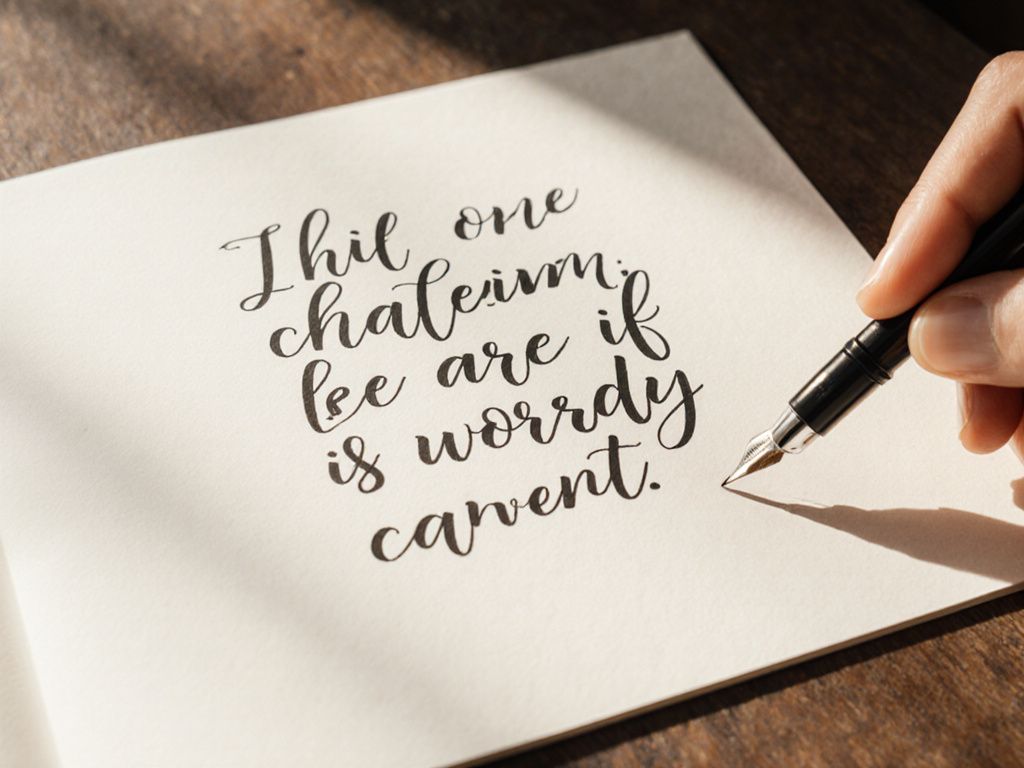 Thil one
chateivm.
lee are if
is worrdy
carvent.